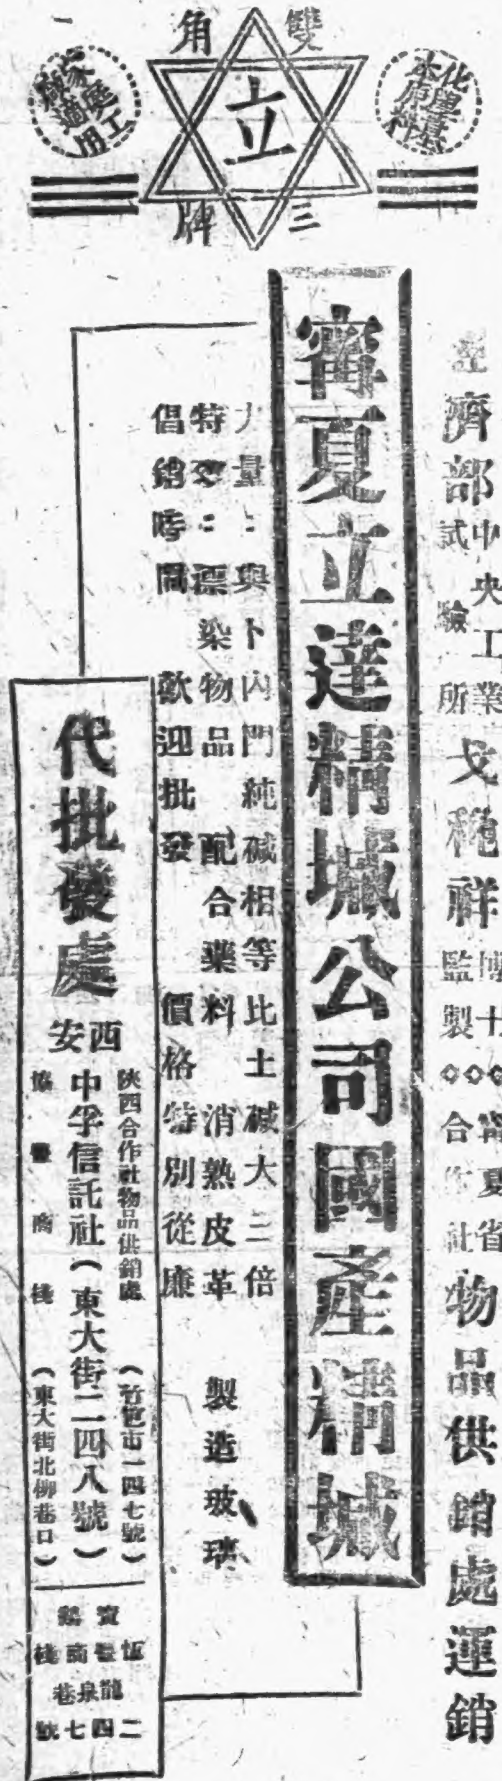 雙三角牌
立
化學基本原料
家庭工廠適用
經濟部中央工業試驗所戈福祥博士監製◇◇◇寗夏省合作社物品供銷處運銷
寗夏立達精堿公司國產精堿
力量：與卜內門純碱相等比土碱大三倍
特效：漂染物品 配合藥料 消熟皮革 製造玻璃
倡銷時間 歡迎批發 價格特別從廉
代批發處
西安
陝西合作社物品供銷處（竹笆市一四七號）
中孚信託社（東大街二四八號）
協豐商棧（東大街北柳巷口）
寶鷄
恒豐商棧
龍泉巷
二四七號